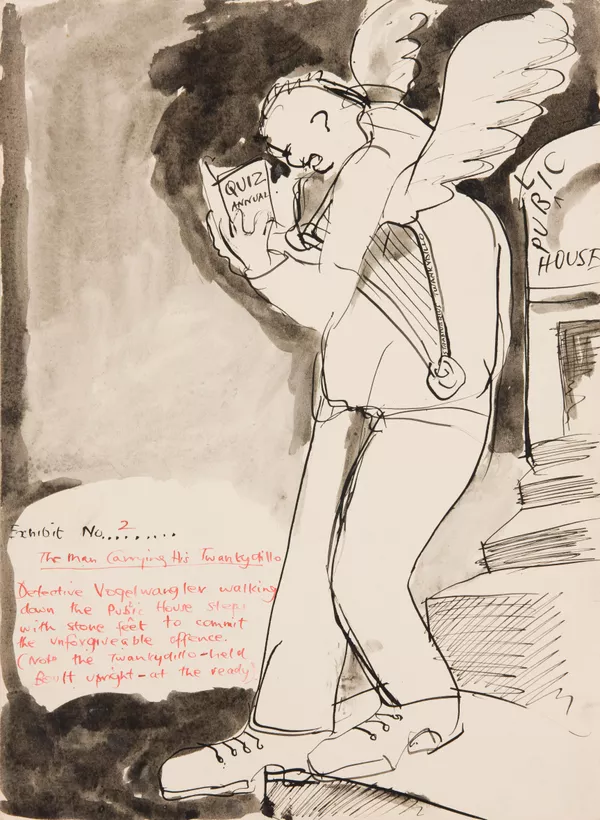 QUIZ
ANNUAL
PUBIC
^
HOUSE
Exhibit No. 2 ........
The Man Carrying His Twankydillo
Defective Vogelwangler walking
down the Pubic House steps
^
with stone feet to commit
the unforgiveable offence.
(Note the Twankydillo-held
Bolt upright - at the ready)